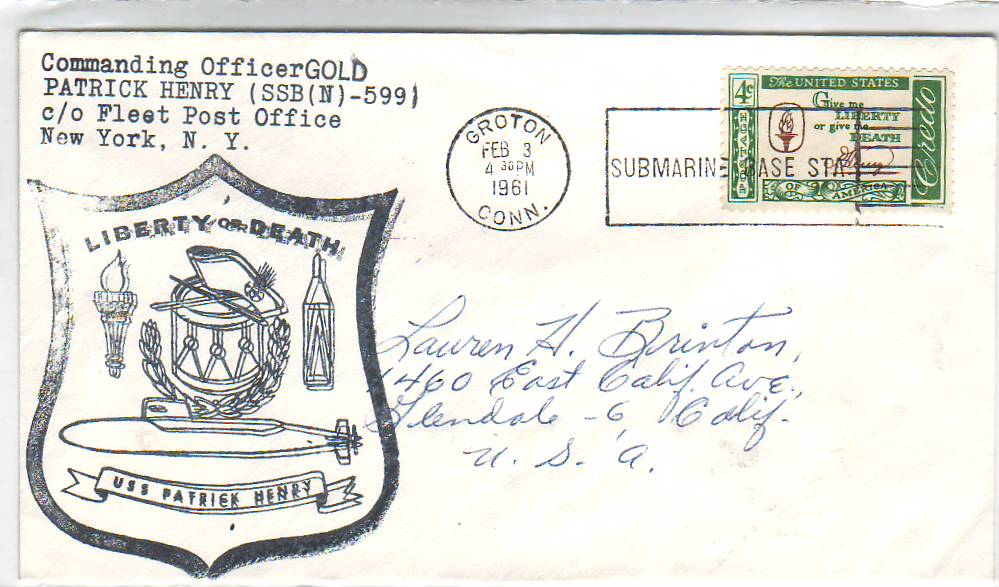 Commanding OfficerGOLD
PATRICK HENRY (SSB(N)-599)
c/o Fleet Post Office
New York, N. Y.
GROTON
FEB 3
4 30 PM
1961
CONN.
SUBMARINE BASE STA.
4c
The UNITED STATES
Give me
LIBERTY
or give me
DEATH
P Henry
OF AMERICA
Credo
LIBERTY OR DEATH
USS PATRICK HENRY
Lauren H. Brinton,
1460 East Calif. Ave.,
Glendale -6, Calif.
U. S. A.